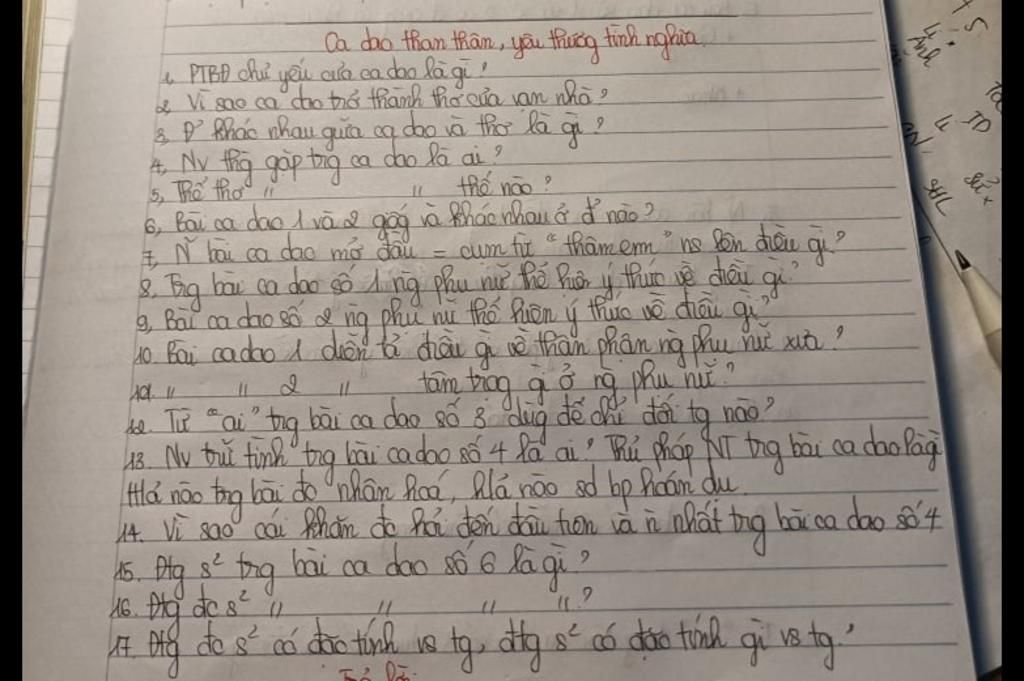 Ca dao than thân, yêu thương tình nghĩa
1, PTBĐ chủ yếu của ca dao là gì?
2, Vì sao ca dao trở thành thơ của vạn nhà?
3, Đ² khác nhau giữa ca dao và thơ là gì?
4, Nv thg gặp trg ca dao là ai?
5, Thể thơ " " thế nào?
6, Bài ca dao 1 và 2 giống và khác nhau ở đ² nào?
7, N~ bài ca dao mở đầu = cụm từ "thân em" ns lên điều gì?
8, Trg bài ca dao số 1 ng phụ nữ thể hiện ý thức về điều gì?
9, Bài ca dao số 2 ng phụ nữ thể hiện ý thức về điều gì?
10. Bài ca dao 1 diễn tả điều gì về thân phận ng phụ nữ xưa?
" " 2 " tâm trạng gì ở ng phụ nữ?
12. Từ "ai" trg bài ca dao số 3 dùg để chỉ đối tg nào?
13. Nv trữ tình trg bài ca dao số 4 là ai? Thủ pháp NT trg bài ca dao là gì
H/ả nào trg bài đc nhân hoá, h/ả nào sd bp hoán dụ
14. Vì sao cái khăn đc hỏi đến đầu tiên và n` nhất trg bài ca dao số 4
15. Đtg s² trg bài ca dao số 6 là gì?
16. Đtg đc s² " " " "?
17. Đtg đc s² có đặc tính vs tg, đtg s² có đặc tính gì vs tg?